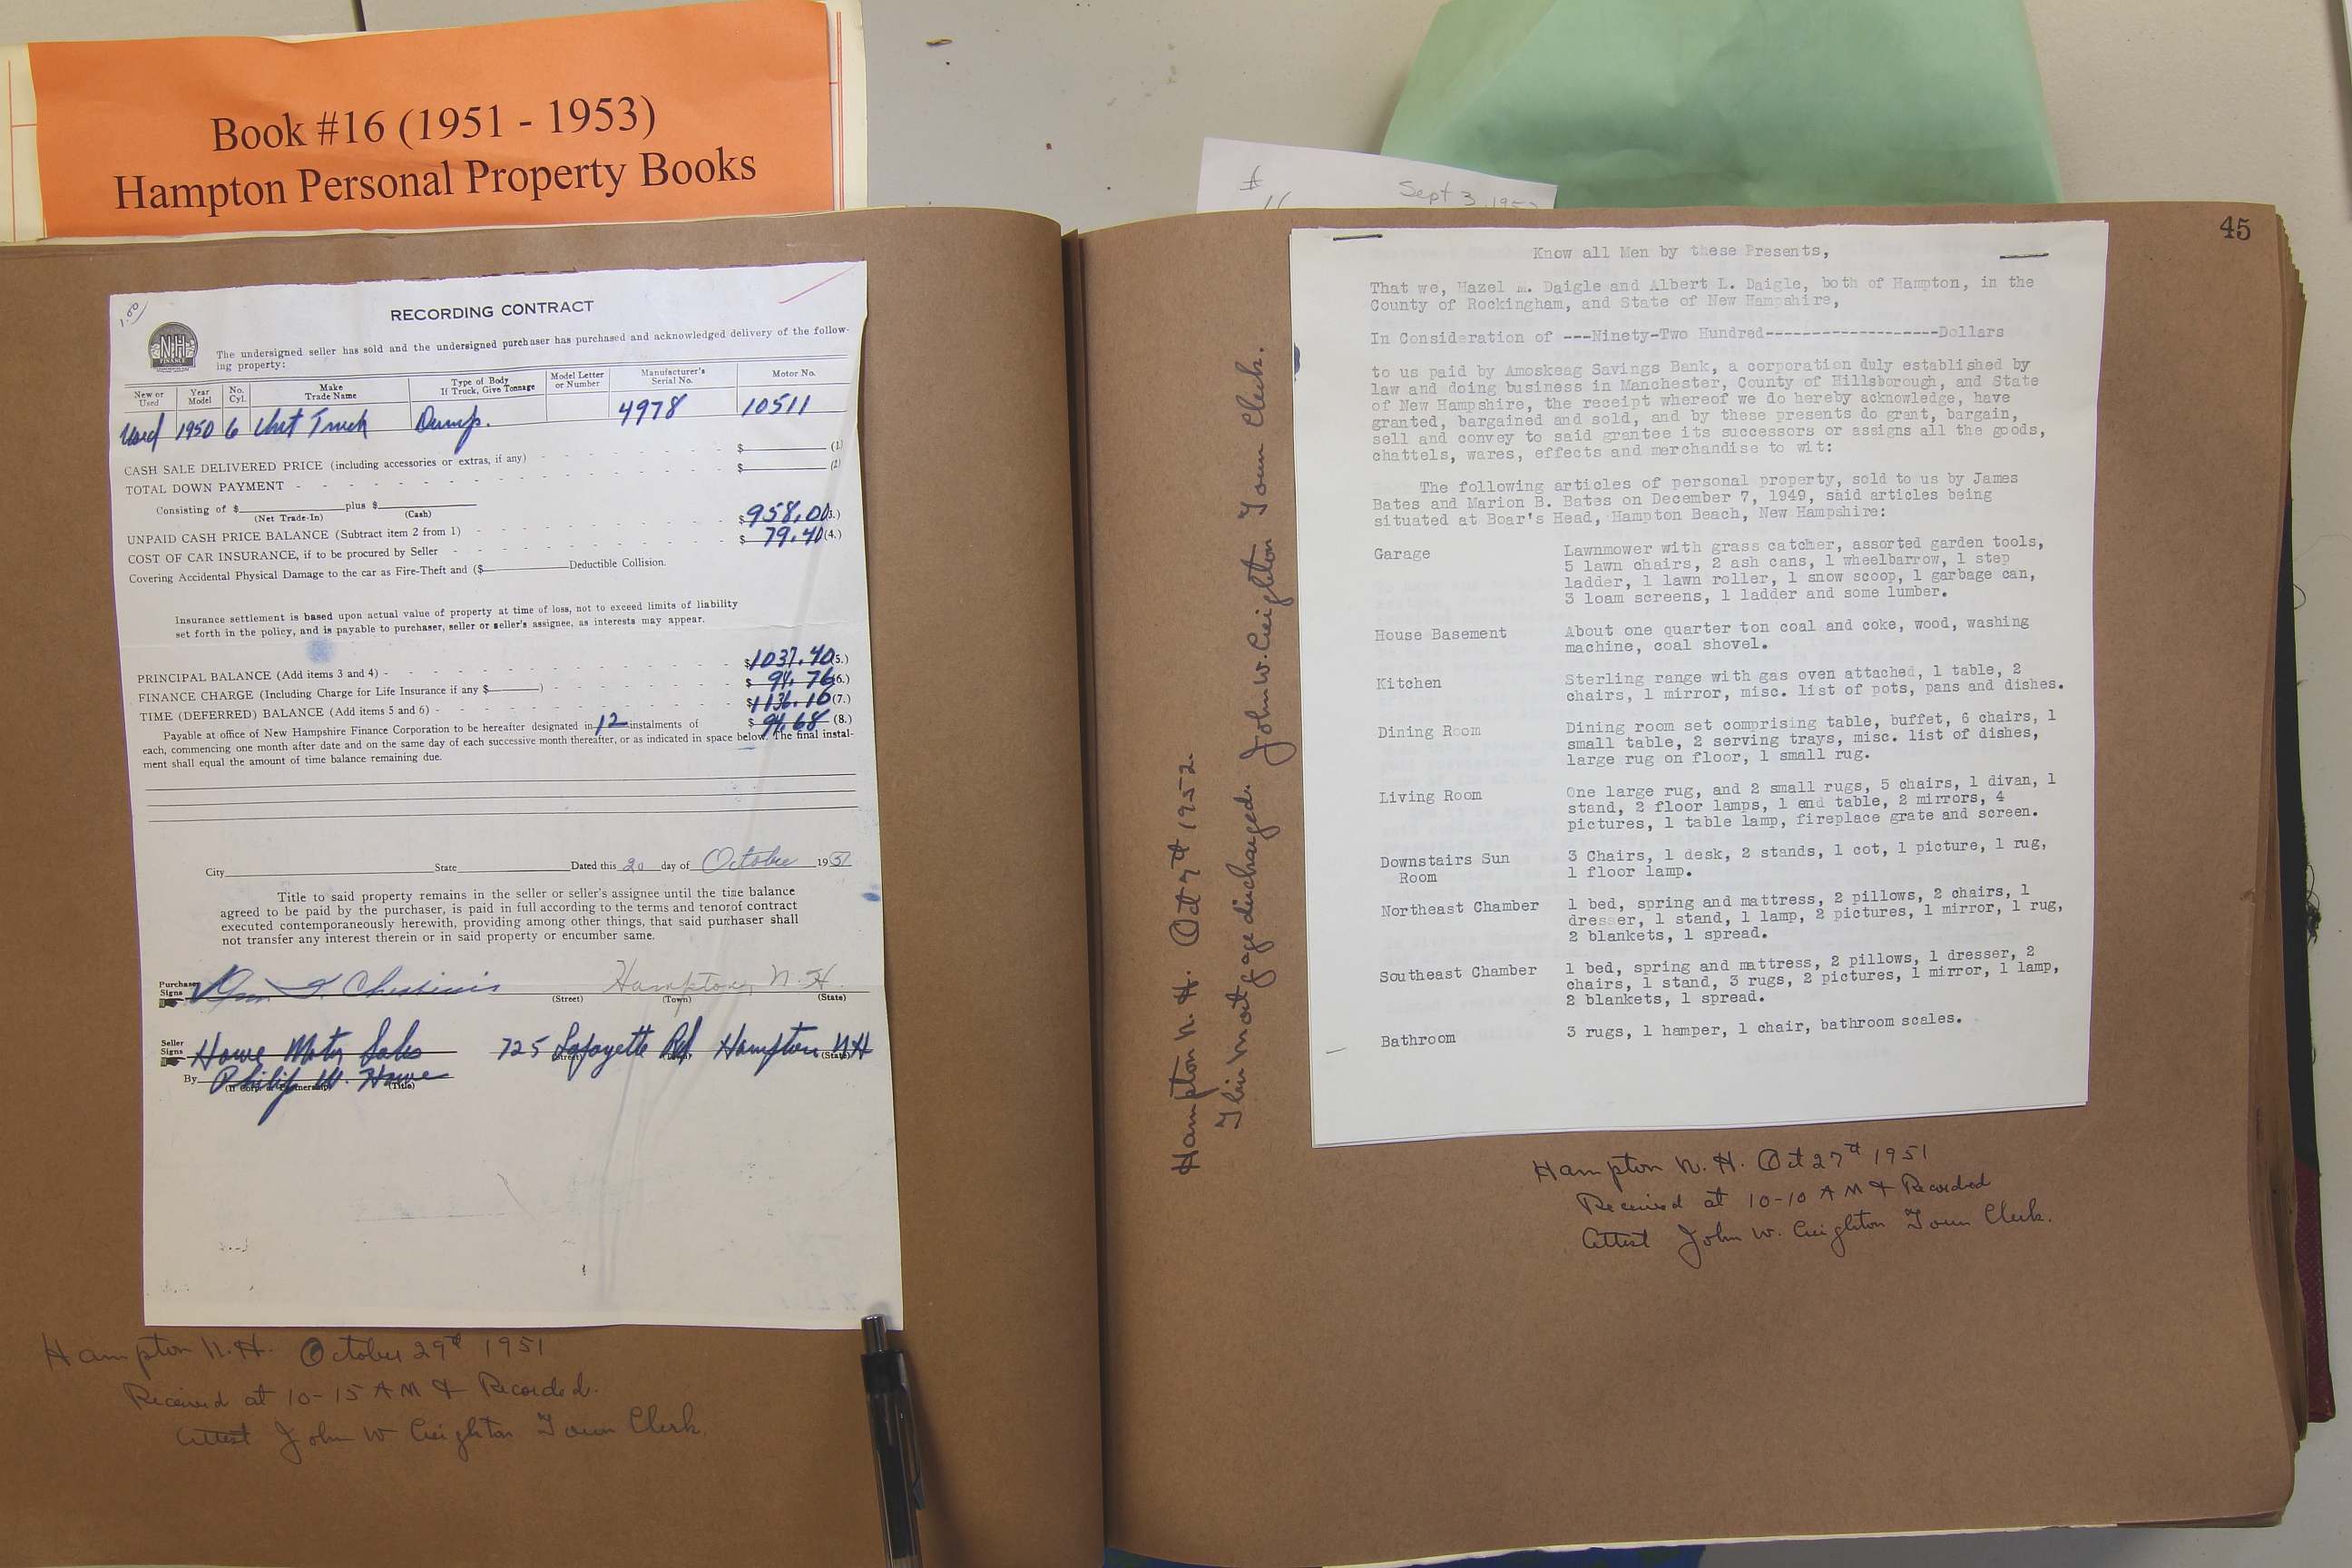 Book #16 (1951 - 1953)
Hampton Personal Property Books
1.00
RECORDING CONTRACT
NH
FINANCE
The undersigned seller has sold and the undersigned purchaser has purchased and acknowledged delivery of the follow-
ing property:
New or Used Year Model No. Cyl. Make Trade Name Type of Body If Truck, Give Tonnage Model Letter or Number Manufacturer's Serial No. Motor No.
Used 1950 6 Truck Dump. 4978 10511
CASH SALE DELIVERED PRICE (including accessories or extras, if any) - - - - - - - $ (1)
TOTAL DOWN PAYMENT - - - - - - - - - - $ (2)
Consisting of $ plus $
(Net Trade-In) (Cash)
UNPAID CASH PRICE BALANCE (Subtract item 2 from 1) - - - - - - - $958.00 (3.)
COST OF CAR INSURANCE, if to be procured by Seller - - - - - - - $ 79.40 (4.)
Covering Accidental Physical Damage to the car as Fire-Theft and ($ Deductible Collision.
Insurance settlement is based upon actual value of property at time of loss, not to exceed limits of liability
set forth in the policy, and is payable to purchaser, seller or seller's assignee, as interests may appear.
PRINCIPAL BALANCE (Add items 3 and 4) - - - - - - - - - $1037.40 (5.)
FINANCE CHARGE (Including Charge for Life Insurance if any $ ) - - - - - - $ 94.76 (6.)
TIME (DEFERRED) BALANCE (Add items 5 and 6) - - - - - - - - $1136.16 (7.)
Payable at office of New Hampshire Finance Corporation to be hereafter designated in 12 instalments of $ 94.68 (8.)
each, commencing one month after date and on the same day of each successive month thereafter, or as indicated in space below. The final instal-
ment shall equal the amount of time balance remaining due.
City State Dated this 20 day of October 1951
Title to said property remains in the seller or seller's assignee until the time balance
agreed to be paid by the purchaser, is paid in full according to the terms and tenorof contract
executed contemporaneously herewith, providing among other things, that said purchaser shall
not transfer any interest therein or in said property or encumber same.
Purchaser Signs Hampton, N.H.
(Street) (Town) (State)
Seller Signs Howe Motor Sales 725 Lafayette Rd Hampton NH
(Street) (State)
By Philip W. Howe
(If Corp. or Partnership) (Title)
Hampton N.H. October 29th 1951
Received at 10-15 AM & Recorded.
Attest John W Creighton Town Clerk.
#
16
Sept 3, 1952
45
Know all Men by these Presents,
That we, Hazel M. Daigle and Albert L. Daigle, both of Hampton, in the
County of Rockingham, and State of New Hampshire,
In Consideration of ---Ninety-Two Hundred-------------------Dollars
to us paid by Amoskeag Savings Bank, a corporation duly established by
law and doing business in Manchester, County of Hillsborough, and State
of New Hampshire, the receipt whereof we do hereby acknowledge, have
granted, bargained and sold, and by these presents do grant, bargain,
sell and convey to said grantee its successors or assigns all the goods,
chattels, wares, effects and merchandise to wit:
The following articles of personal property, sold to us by James
Bates and Marion B. Bates on December 7, 1949, said articles being
situated at Boar's Head, Hampton Beach, New Hampshire:
Garage Lawnmower with grass catcher, assorted garden tools,
5 lawn chairs, 2 ash cans, 1 wheelbarrow, 1 step
ladder, 1 lawn roller, 1 snow scoop, 1 garbage can,
3 loam screens, 1 ladder and some lumber.
House Basement About one quarter ton coal and coke, wood, washing
machine, coal shovel.
Kitchen Sterling range with gas oven attached, 1 table, 2
chairs, 1 mirror, misc. list of pots, pans and dishes.
Dining Room Dining room set comprising table, buffet, 6 chairs, 1
small table, 2 serving trays, misc. list of dishes,
large rug on floor, 1 small rug.
Living Room One large rug, and 2 small rugs, 5 chairs, 1 divan, 1
stand, 2 floor lamps, 1 end table, 2 mirrors, 4
pictures, 1 table lamp, fireplace grate and screen.
Downstairs Sun 3 Chairs, 1 desk, 2 stands, 1 cot, 1 picture, 1 rug,
Room 1 floor lamp.
Northeast Chamber 1 bed, spring and mattress, 2 pillows, 2 chairs, 1
dresser, 1 stand, 1 lamp, 2 pictures, 1 mirror, 1 rug,
2 blankets, 1 spread.
Southeast Chamber 1 bed, spring and mattress, 2 pillows, 1 dresser, 2
chairs, 1 stand, 3 rugs, 2 pictures, 1 mirror, 1 lamp,
2 blankets, 1 spread.
Bathroom 3 rugs, 1 hamper, 1 chair, bathroom scales.
Hampton N. H. Oct 27th 1951
Received at 10-10 AM & Recorded
Attest John W. Creighton Town Clerk.
Hampton N. H. Oct 7th 1952.
This mortgage discharged. John W. Creighton Town Clerk.